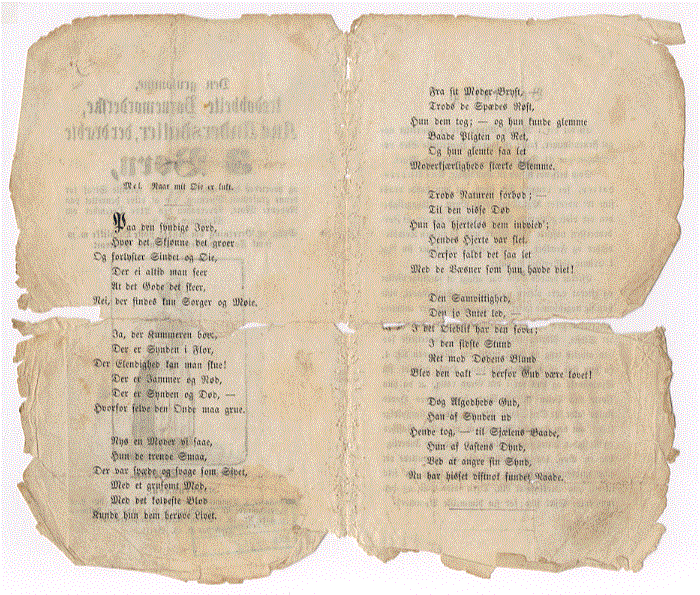 Mel. Naar mit Øie er lukt.
Paa den syndige Jord,
Hvor det Skjønne det groer
Og forlyster Sindet og Øie,
Der ei altid man seer
At det Gode det skeer,
Nei, der findes kun Sorger og Møie.
Ja, der Kummeren boer,
Der er Synden i Flor,
Der Elendighed kan man skue!
Der er Jammer og Nød,
Der er Synden og Død, —
Hvorfor selve den Onde maa grue.
Nys en Moder vi saae,
Hun de trende Smaa,
Der var spæde og svage som Sivet,
Med et grusomt Mod,
Med det koldeste Blod
Kunde hun dem berøve Livet.
Fra sit Moder-Bryst,
Trods de Spædes Røst,
Hun dem tog; — og hun kunde glemme
Baade Pligten og Ret,
Og hun glemte saa let
Moderkjærligheds stærke Stemme.
Trods Naturen forbød; —
Til den visse Død
Hun saa hjerteløs dem indvied';
Hendes Hjerte var slet.
Derfor faldt det saa let
Med de Væsner som hun havde viet!
Den Samvittighed,
Den jo Intet led, —
I det Øieblik har den sovet;
I den sidste Stund
Ret mod Dødens Blund
Blev den vakt — derfor Gud være lovet!
Dog Algodheds Gud,
Han af Synden ud
Hende tog, — til Sjælens Baade,
Hun af Lastens Dynd,
Ved at angre sin Synd,
Nu har hisset vistnok fundet Naade.